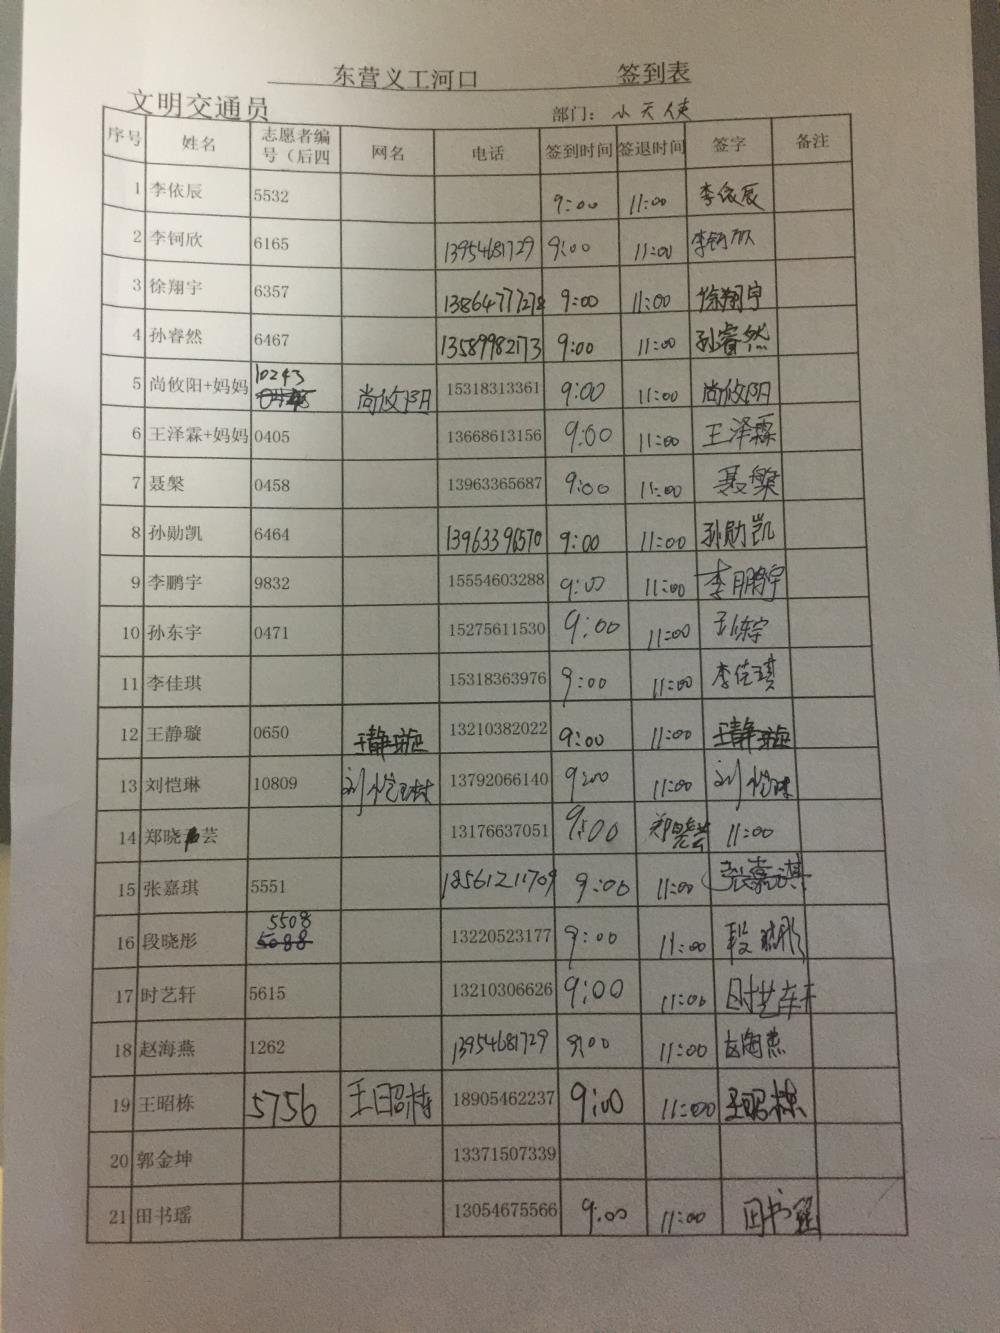 东营义工河口 签到表
文明交通员 部门：小天使
序号 姓名 志愿者编号（后四 网名 电话 签到时间 签退时间 签字 备注
1 李依辰 5532 9:00 11:00 李依辰
2 李钶欣 6165 13954681729 9:00 11:00 李钶欣
3 徐翔宇 6357 13864777278 9:00 11:00 徐翔宇
4 孙睿然 6467 13589982773 9:00 11:00 孙睿然
5 尚攸阳+妈妈 10243 尚攸阳 15318313361 9:00 11:00 尚攸阳
6 王泽霖+妈妈 0405 13668613156 9:00 11:00 王泽霖
7 聂槃 0458 13963365687 9:00 11:00 聂槃
8 孙勋凯 6464 13963396570 9:00 11:00 孙勋凯
9 李鹏宇 9832 15554603288 9:00 11:00 李鹏宇
10 孙东宇 0471 15275611530 9:00 11:00 孙东宇
11 李佳琪 15318363976 9:00 11:00 李佳琪
12 王静璇 0650 王静璇 13210382022 9:00 11:00 王静璇
13 刘恺琳 10809 刘恺琳 13792066140 9:00 11:00 刘恺琳
14 郑晓芸 13176637051 9:00 郑晓芸 11:00
15 张嘉琪 5551 18561211709 9:00 11:00 张嘉琪
16 段晓彤 5508 5088 13220523177 9:00 11:00 段晓彤
17 时艺轩 5615 13210306626 9:00 11:00 时艺轩
18 赵海燕 1262 13954681729 9:00 11:00 赵海燕
19 王昭栋 5756 王昭栋 18905462237 9:00 11:00 王昭栋
20 郭金坤 13371507339
21 田书瑶 13054675566 9:00 11:00 田书瑶